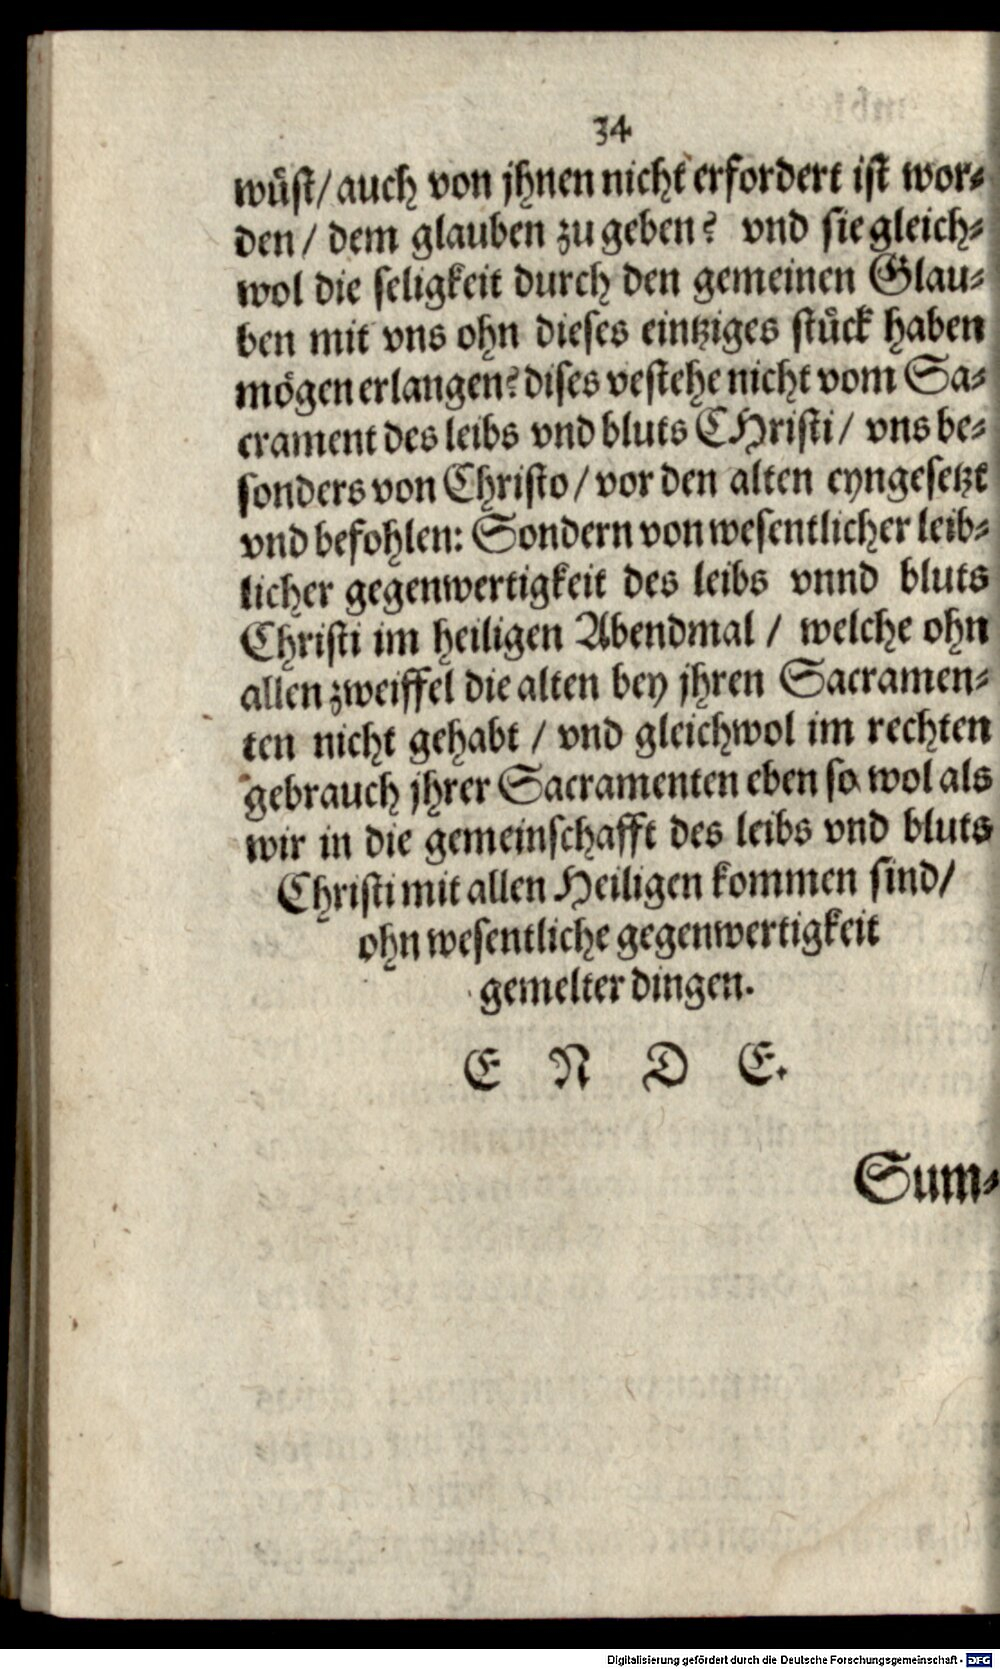 34
wüst/ auch von jhnen nicht erfordert ist wor-
den/ dem glauben zu geben? vnd sie gleich-
wol die seligkeit durch den gemeinen Glau-
ben mit vns ohn dieses eintziges stück haben
mögen erlangen? dises vestehe nicht vom Sa-
crament des leibs vnd bluts CHristi/ vns be-
sonders von Christo/ vor den alten eyngesetzt
vnd befohlen: Sondern von wesentlicher leib-
licher gegenwertigkeit des leibs vnnd bluts
Christi im heiligen Abendmal/ welche ohn
allen zweiffel die alten bey jhren Sacramen-
ten nicht gehabt/ vnd gleichwol im rechten
gebrauch jhrer Sacramenten eben so wol als
wir in die gemeinschafft des leibs vnd bluts
Christi mit allen Heiligen kommen sind/
ohn wesentliche gegenwertigkeit
gemelter dingen.
E N D E.
Sum-
Digitalisierung gefördert durch die Deutsche Forschungsgemeinschaft - DFG